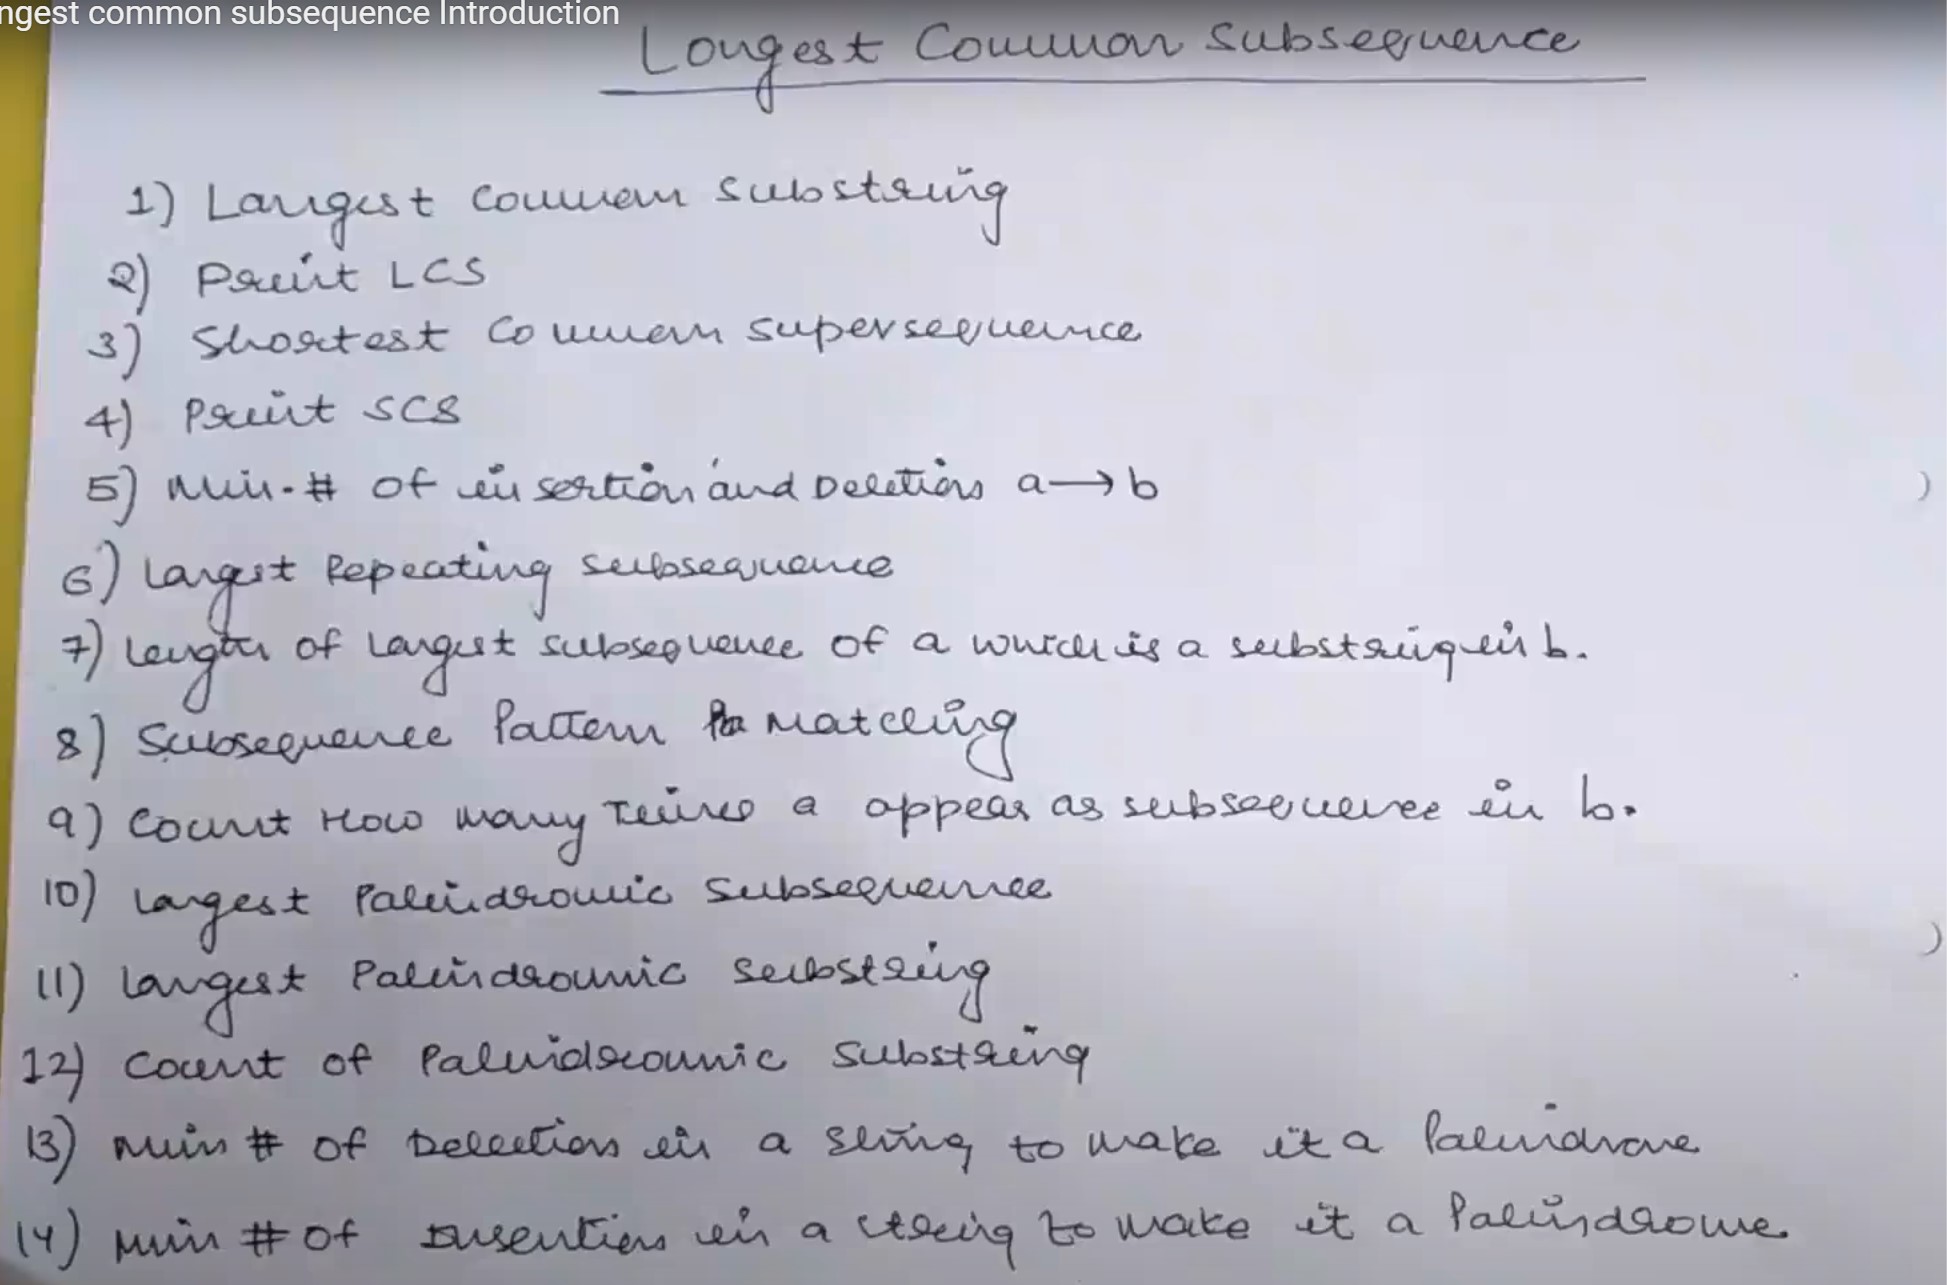 ngest common subsequence Introduction
Longest Common Subsequence
1) Largest Common Substring
2) Print LCS
3) Shortest Common supersequence
4) Print SCS
5) Min. # of insertion and Deletion a → b
6) Largest Repeating subsequence
7) Length of Largest subsequence of a which is a substring in b.
8) Subsequence Pattern Matching
9) Count How many Times a appear as subsequence in b.
10) Largest Palindromic Subsequence
11) Largest Palindromic Substring
12) Count of Palindromic Substring
13) Min # of Deletion in a string to make it a Palindrome
14) Min # of Insertion in a string to make it a Palindrome